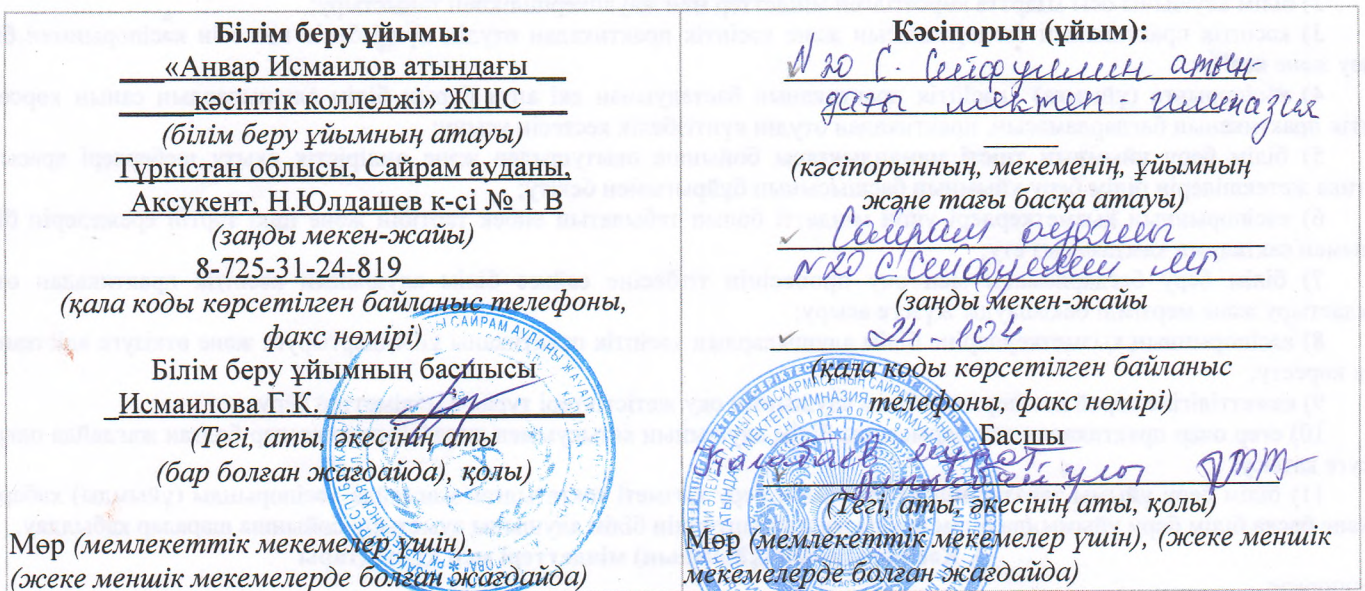 Білім беру ұйымы:
«Анвар Исмаилов атындағы
кәсіптік колледжі» ЖШС
(білім беру ұйымның атауы)
Түркістан облысы, Сайрам ауданы,
Аксукент, Н.Юлдашев к-сі № 1 В
(заңды мекен-жайы)
8-725-31-24-819
(қала коды көрсетілген байланыс телефоны,
факс нөмірі)
Білім беру ұйымның басшысы
Исмаилова Г.К.
(Тегі, аты, әкесінің аты
(бар болған жағдайда), қолы)
Мөр (мемлекеттік мекемелер үшін),
(жеке меншік мекемелерде болған жағдайда)
Кәсіпорын (ұйым):
N 20 С. Сейфуллин атын-
дағы мектеп гимназия
(кәсіпорынның, мекеменің, ұйымның
және тағы басқа атауы)
Сайрам ауданы
N 20 С Сейфуллин мг
(заңды мекен-жайы
(қала коды көрсетілген байланыс
телефоны, факс нөмірі)
Басшы
(Тегі, аты, әкесінің аты, қолы)
Мөр (мемлекеттік мекемелер үшін), (жеке меншік
мекемелерде болған жағдайда)